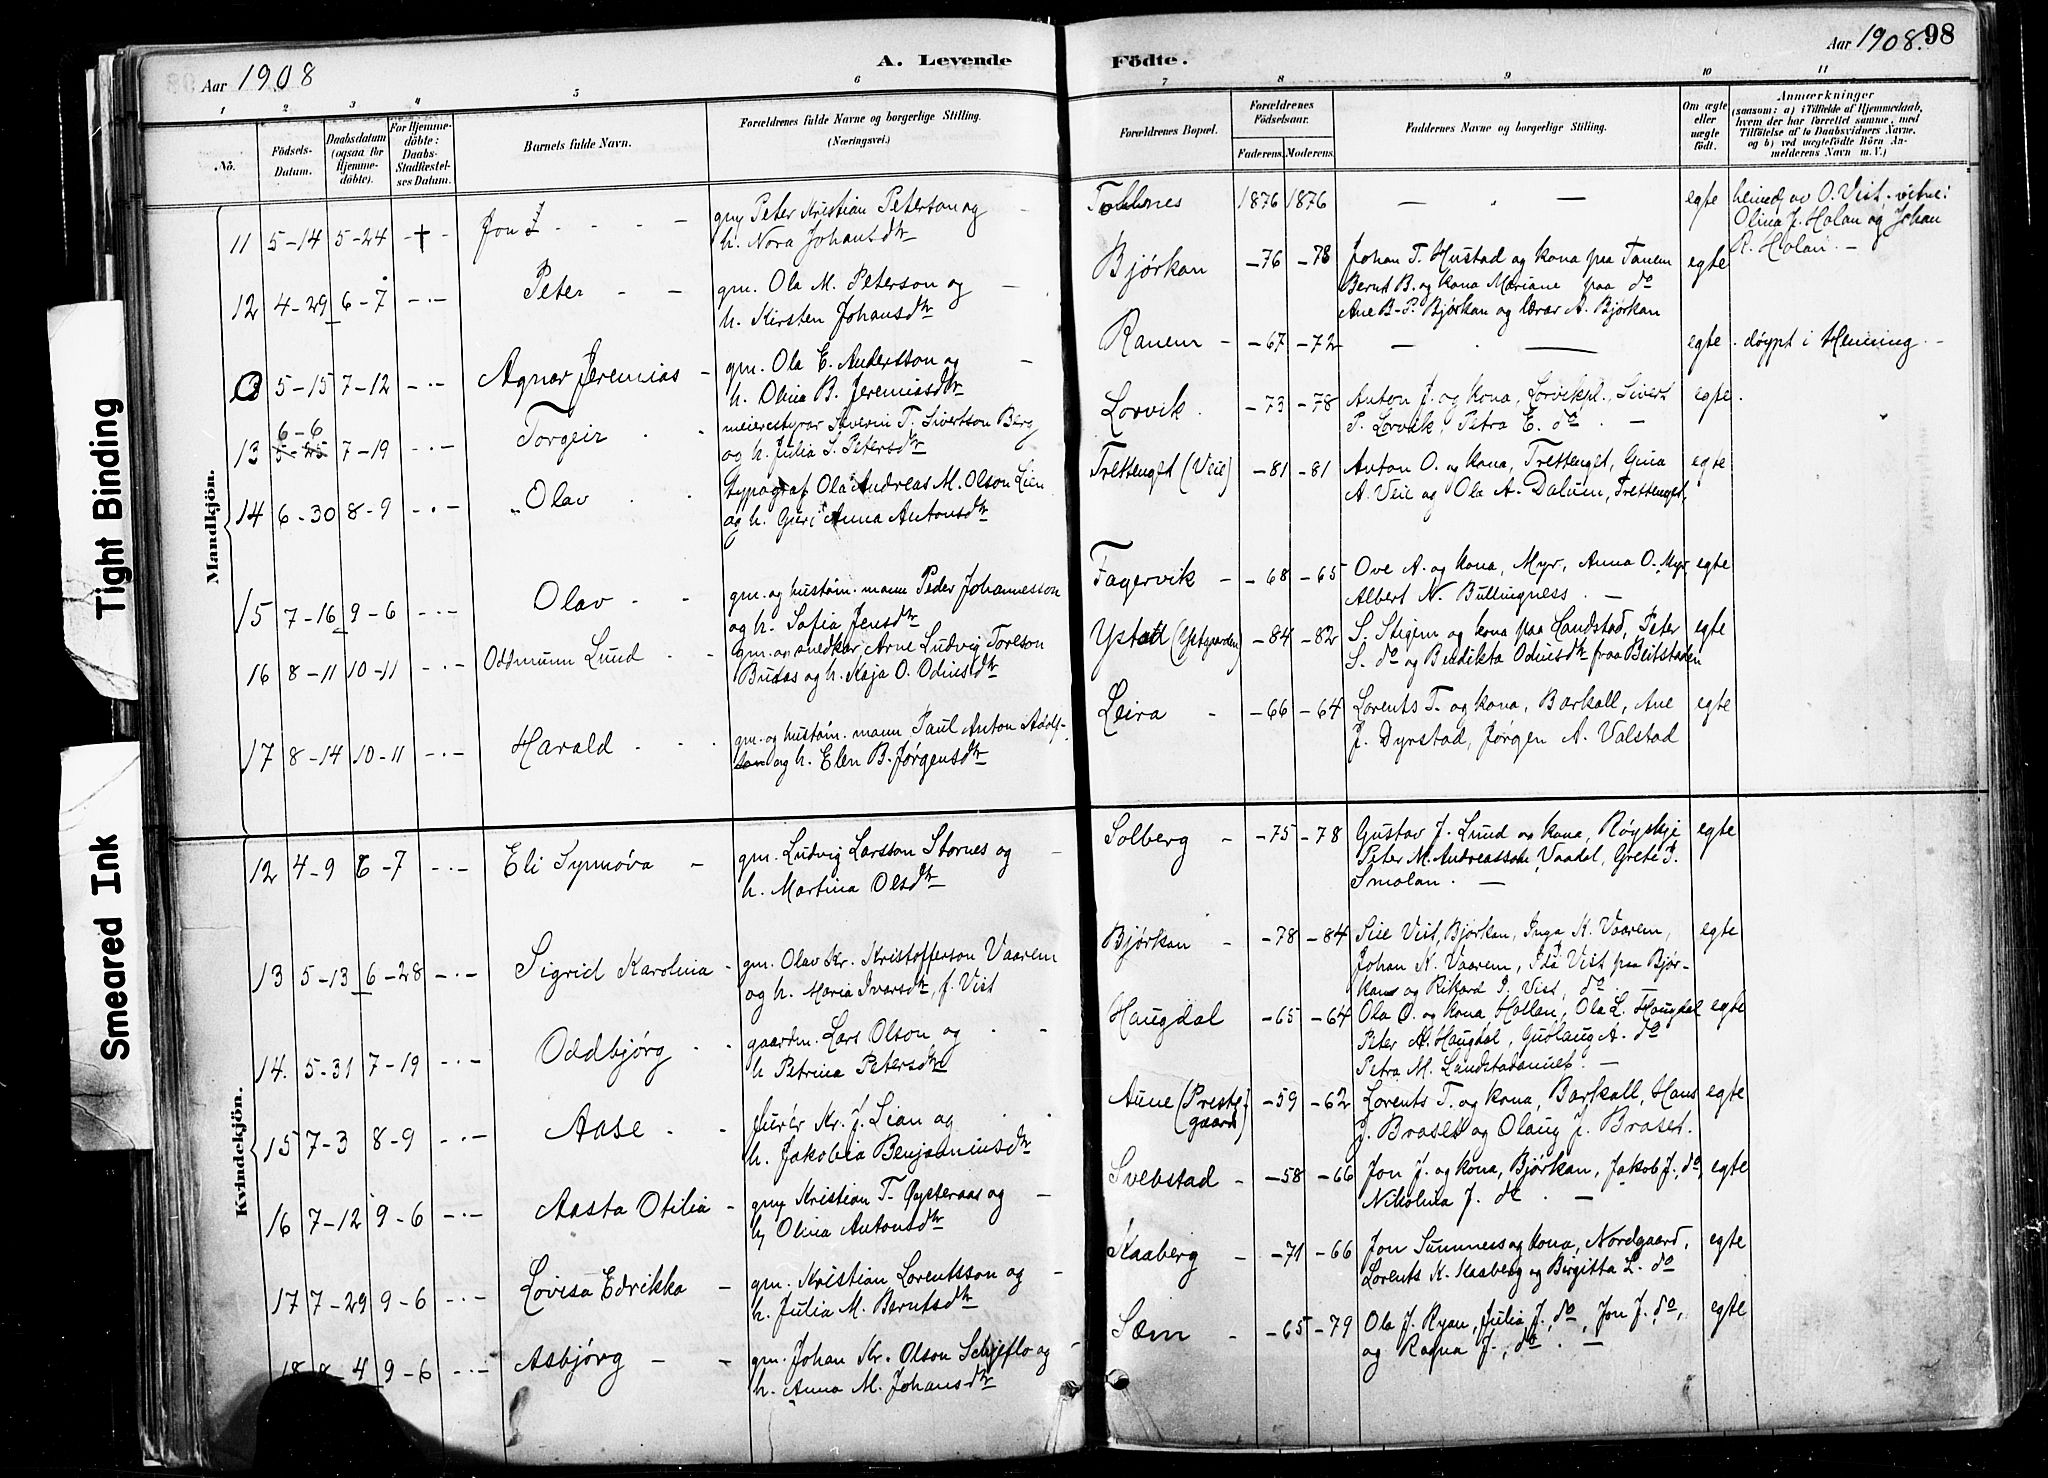 Aar 1908
A. Levende
Födte.
Aar 1908. 98
1 2 3 4 5 6 7 8 9 10 11
Nö.
Födsels-Datum.
Daabsdatum (ogsaa for Hjemme-döbte).
For Hjemme-döbte: Daabs-Stadfæstel-ses Datum.
Barnets fulde Navn.
Forældrenes fulde Navne og borgerlige Stilling. (Næringsvei.)
Forældrenes Bopæl.
Forældrenes Födselsaar.
Faderens. Moderens.
Faddernes Navne og borgerlige Stilling.
Om ægte eller uægte födt.
Anmærkninger
(saasom: a) i Tilfælde af Hjemmedaab, hvem der har forrettet samme, med Tilföielse af to Daabsvidners Navne, og b) ved uægtefödte Börn An-melderens Navn m. V.)
Tight Binding
Smeared Ink
Mandkjön.
11 5-14 5-24 -†- Jon gm. Peter Kristian Peterson og
h. Nora Johansdtr
Tollnes 1876 1876 — " — egte heimed. av O. Vist. vitne:
Olina J. Holan og Johan
R. Holan. —
12 4-29 6-7 -.- Peter - - gm. Ola M. Peterson og
h. Kirsten Johansdtr
Bjørkan -76 -78 Johan T. Hustad og kona paa Tanem egte
Bernt B. og kona Mariane paa do
Ane B-P. Bjørkan og lærar A. Bjørkan
5-15 7-12 -.- Agnar Jeremias - gm. Ola E. Andersson og
h. Olina B. Jeremiasdtr
Ranem - -67 -72 — . — egte . døypt i Henning. -
13 6-6 5-25 7-19 -.- Torgeir . . meierestyrar Severin T. Sivertson Berg
og h. Julia S. Petersdtr
Lorvik. -73 -78 Anton J. og kona, Lorvikpl., Sivert egte.
P. Lorvik, Petra E. do . —
14 6-30 8-9 -.- Olav . . typograf Ola Andreas M. Olson Lien
og h. Guri Anna Antonsdtr
Trettenget (Veie) -81 -81 Anton O. og kona, Trettenget, Gina egte
A. Veie og Ola A. Dalum, Trettenget,
15 7-16 9-6 -.- Olav - - gm. og hustøm. mann Peder Johannesson
og h. Sofia Jensdtr
Fagervik - -68 -65 Ove A. og kona, Myr, Anna O. Myr, egte
Albert N. Bullingness. —
16 8-11 10-11 -.- Oddmunn Lund . . gm. og snedkar Arne Ludvig Torleson
Budas og h. Kaja O. Odinsdtr
Ystad (Ystgarden) -84 -82 S. Stigem og kona paa Handstad, Peter egte
S. do og Bendikta Odinsdtr fraa Beitstaden
17 8-14 10-11 -.- Harald . . . gm. og hustøm. mann Paul Anton Adolf-
son og h. Elen B. Jørgensdtr
Leira - -66 -64 Lorents T. og kona, Barkall, Ane egte
J. Dyrstad, Jørgen A. Valstad
Kvindekjön.
12 4-9 6-7 -.- Eli Synnøva - gm. Ludvig Larsson Stornes og
h. Martina Olsdtr
Solberg - -75 -78 Gustav J. Lund og kona, Røyskje egte
Peter M. Andreasson, Vaadal, Grete J.
Smolan. —
13 5-13 6-28 -.- Sigrid Karolina - gm. Olav Kr. Kristofferson Vaarem
og h. Maria Ivarsdtr, f. Vist
Bjørkan - -78 -84 Sise Vist, Bjørkan, Inga K. Vaarem, egte
Johan N. Vaarem, Ida Vist paa Bjør-
kan og Rikard I. Vist, do .
14. 5-31 7-19 -.- Oddbjørg . . gaardm. Lars Olson og . -
h Petrina Petersdtr
Haugdal -65 -64 Ola O. og kona Hollan, Ola L. Haugdal egte
Peter A. Haugdal, Gudlaug A. do
Petra M. Landstadaunet. —
15 7-3 8-9 -.- Aase . . Kr. J. Lian og . .
h. Jakobia Benjaminsdtr
Aune (Prestegaard) -59 -62 Lorents T. og kona, Barkall, Hans egte
J. Braset og Olaug J. Braset.
16 7-12 9-6 -.- Aasta Otilia - gm. Kristian T. Øysteraas og -
h. Olina Antonsdtr
Svebstad - -58 -66 Jon J. og kona, Bjørkan, Jakob J. do, egte
Nikolina J. do . —
17 7-29 9-6 -.- Lovisa Edrikka - gm. Kristian Lorentsson og -
h. Julia M. Berntsdtr
Kaaberg - -71 -66 Jon Sumnes og kona, Nordgaard, egte
Lorents K. Kaaberg og Birgitta L. do
18 8-4 9-6 -.- Asbjørg - - gm. Johan Kr. Olson Schjeflo og -
h. Anna M. Johansdtr
Sæm - -65 -79 Ola J. Ryan, Julia J. do, Jon J. do, egte
og Ragna J., do . —